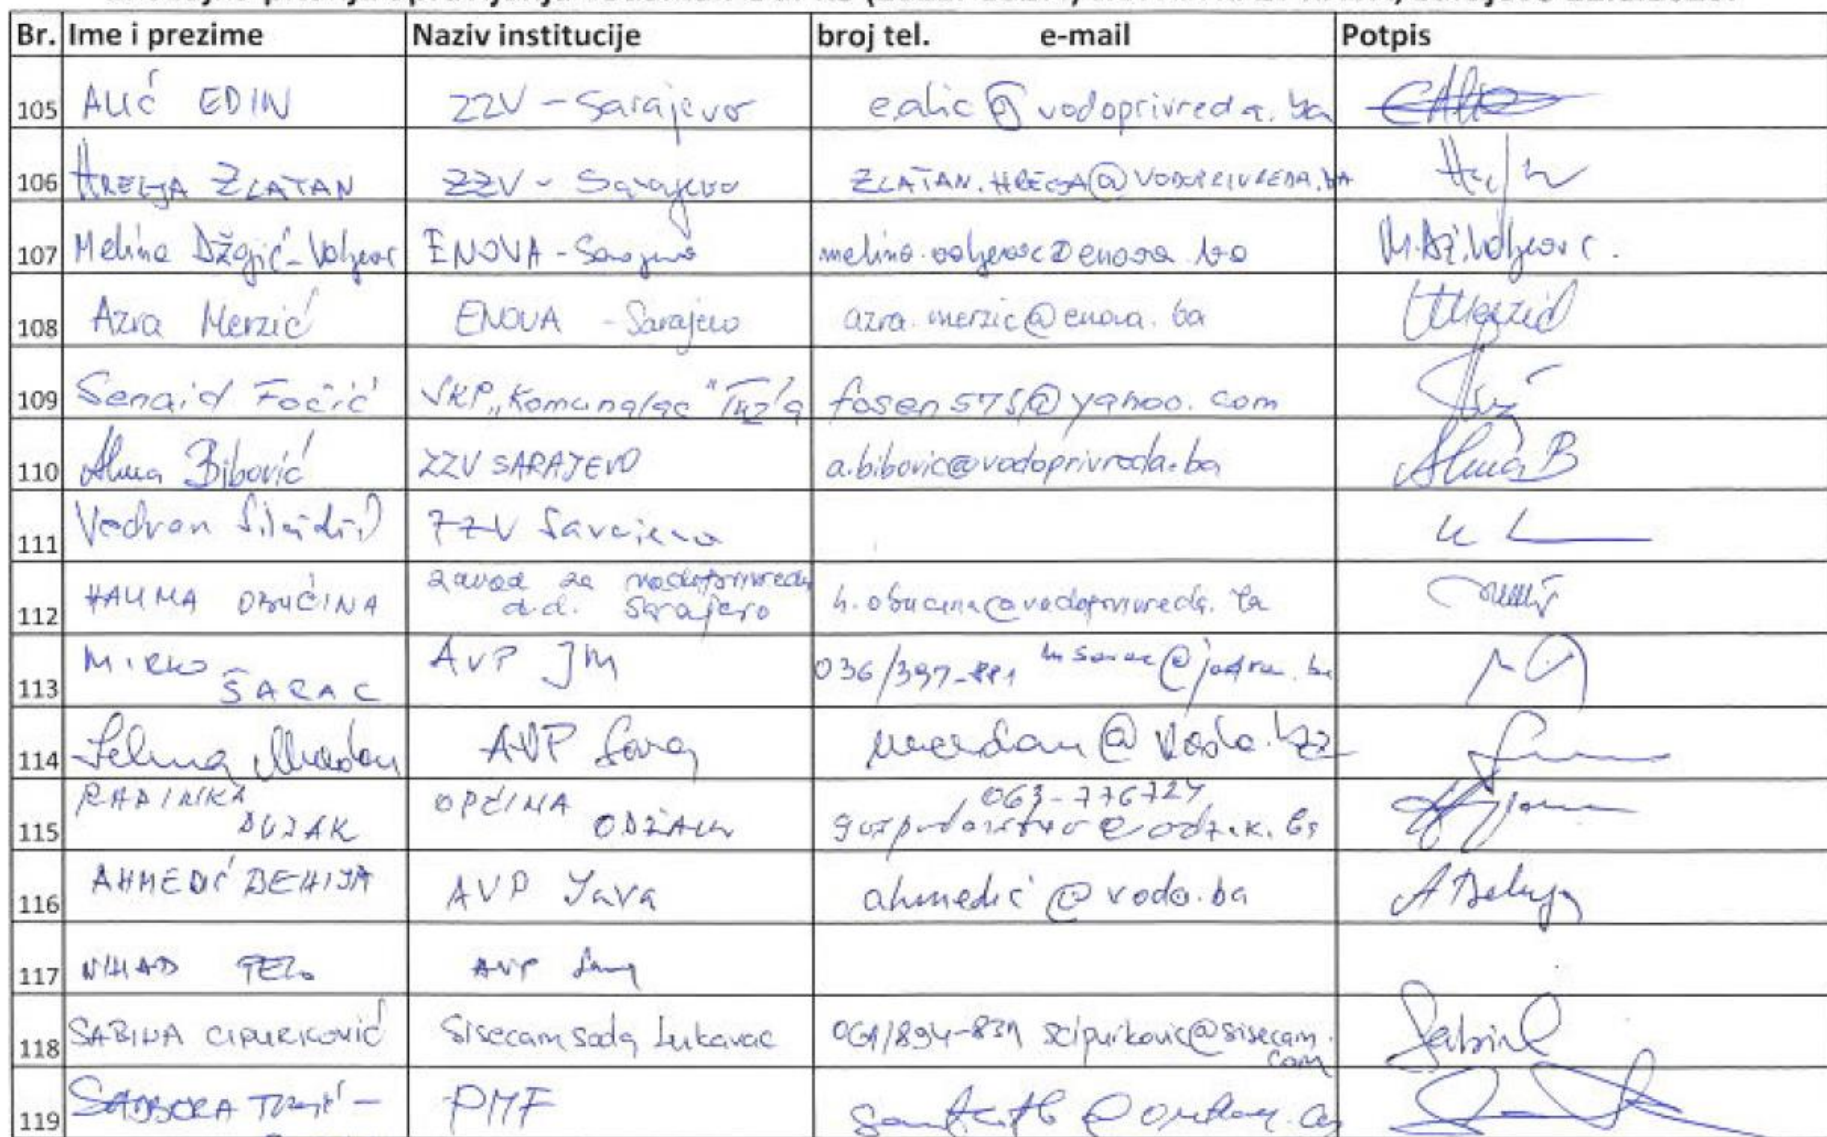 Br. Ime i prezime Naziv institucije broj tel. e-mail Potpis
105 ALIĆ EDIN ZZV - Sarajevo ealic@vodoprivreda.ba
106 HRELJA ZLATAN ZZV - Sarajevo ZLATAN.HRELJA@VODOPRIVREDA.BA
107 Melina Džajić-Valjevac ENOVA - Sarajevo melina.valjevac@enova.ba
108 Azra Merzić ENOVA - Sarajevo azra.merzic@enova.ba AMerzić
109 Senaid Fočić "Komunalac" fosen575@yahoo.com
110 Alma Bibović ZZV SARAJEVO a.bibovic@vodoprivreda.ba Alma B
111 Vedran ZZV Sarajevo
112 HALIMA OBUĆINA Zavod za vodoprivredu
d.d. Sarajevo h.obucina@vodoprivreda.ba
113 MIRKO ŠARAC AVP JM 036/397-881
114 Selma Merdan AVP Sava merdan@voda.ba
115 RADINKA OPĆINA ODŽAK 063-776724
116 AHMEDIĆ BEHIJA AVP Sava ahmedić@voda.ba A Behija
117 NIHAD AVP Sava
118 SABINA CIPURKOVIĆ Sisecam soda Lukavac 061/894-839 scipurkovic@sisecam.
com Sabina
119 PMF